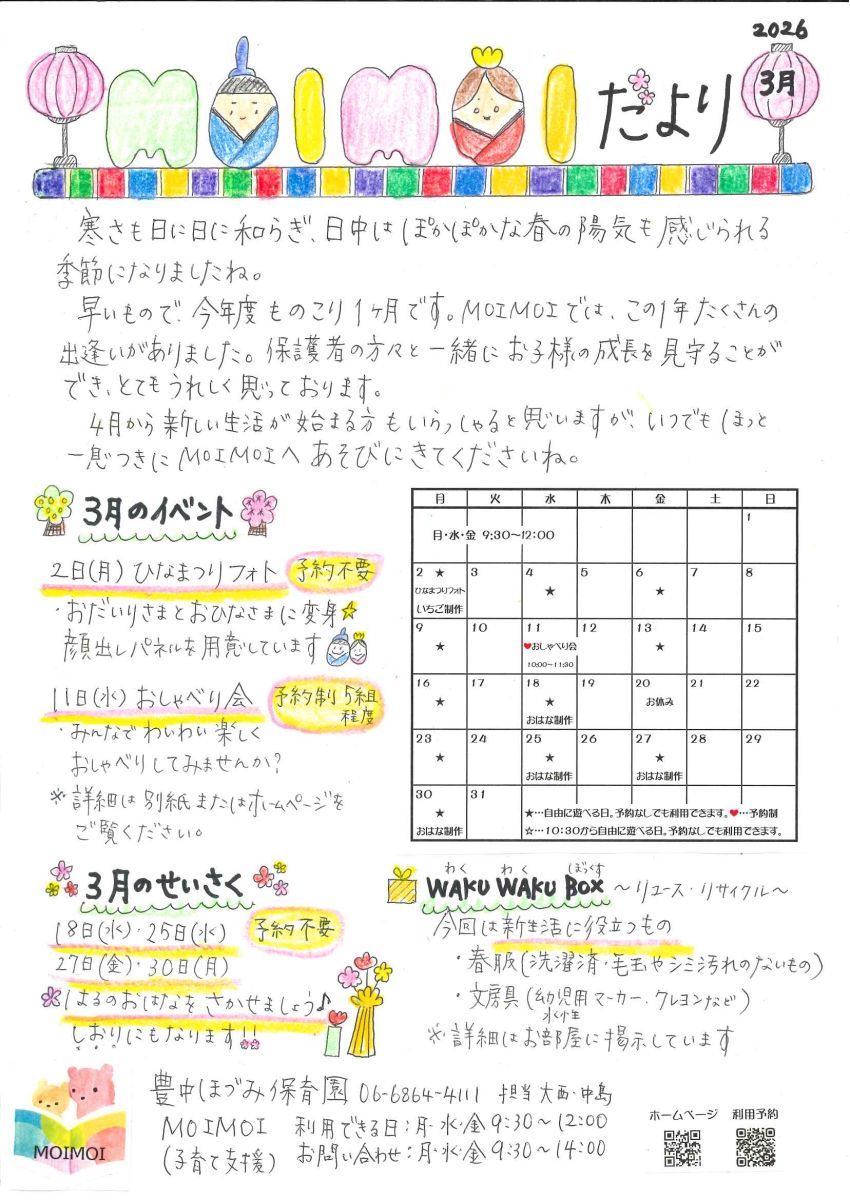 2026
MOIMOI だより
3月
寒さも日に日に和らぎ、日中はぽかぽかな春の陽気も感じられる
季節になりましたね。
早いもので、今年度ものこり1ヶ月です。MOIMOIでは、この1年たくさんの
出逢いがありました。保護者の方々と一緒にお子様の成長を見守ることが
でき、とてもうれしく思っております。
4月から新しい生活が始まる方もいらっしゃると思いますが、いつでもほっと
一息つきにMOIMOIへあそびにきてくださいね。
3月のイベント
2日(月) ひなまつりフォト 予約不要
・おだいりさまとおひなさまに変身☆
顔出しパネルを用意しています
11日(水) おしゃべり会 予約制 5組
程度
・みんなでわいわい楽しく
おしゃべりしてみませんか?
※詳細は別紙またはホームページを
ご覧ください。
月 火 水 木 金 土 日
1
月・水・金 9:30〜12:00
2 ★ 3 4 5 6 7 8
ひなまつりフォト ★ ★
いちご制作
9 10 11 12 13 14 15
★ ♥おしゃべり会 ★
10:00〜11:30
16 17 18 19 20 21 22
★ ★ お休み
おはな制作
23 24 25 26 27 28 29
★ ★ ★
おはな制作 おはな制作
30 31
★ ★…自由に遊べる日。予約なしでも利用できます。♥…予約制
おはな制作 ☆…10:30から自由に遊べる日。予約なしでも利用できます。
3月のせいさく
18日(水)・25日(水) 予約不要
27日(金)・30日(月)
はるのおはなをさかせましょう♪
しおりにもなります!!
わく わく ぼっくす
WAKU WAKU BOX 〜リユース・リサイクル〜
今回は新生活に役立つもの
・春服(洗濯済・毛玉やシミ汚れのないもの)
・文房具(幼児用マーカー・クレヨンなど)
水性
※詳細はお部屋に掲示しています
MOIMOI
豊中ほづみ保育園 06-6864-4111 担当 大西・中島
MOIMOI 利用できる日:月・水・金 9:30〜12:00
(子育て支援) お問い合わせ:月・水・金 9:30〜14:00
ホームページ 利用予約